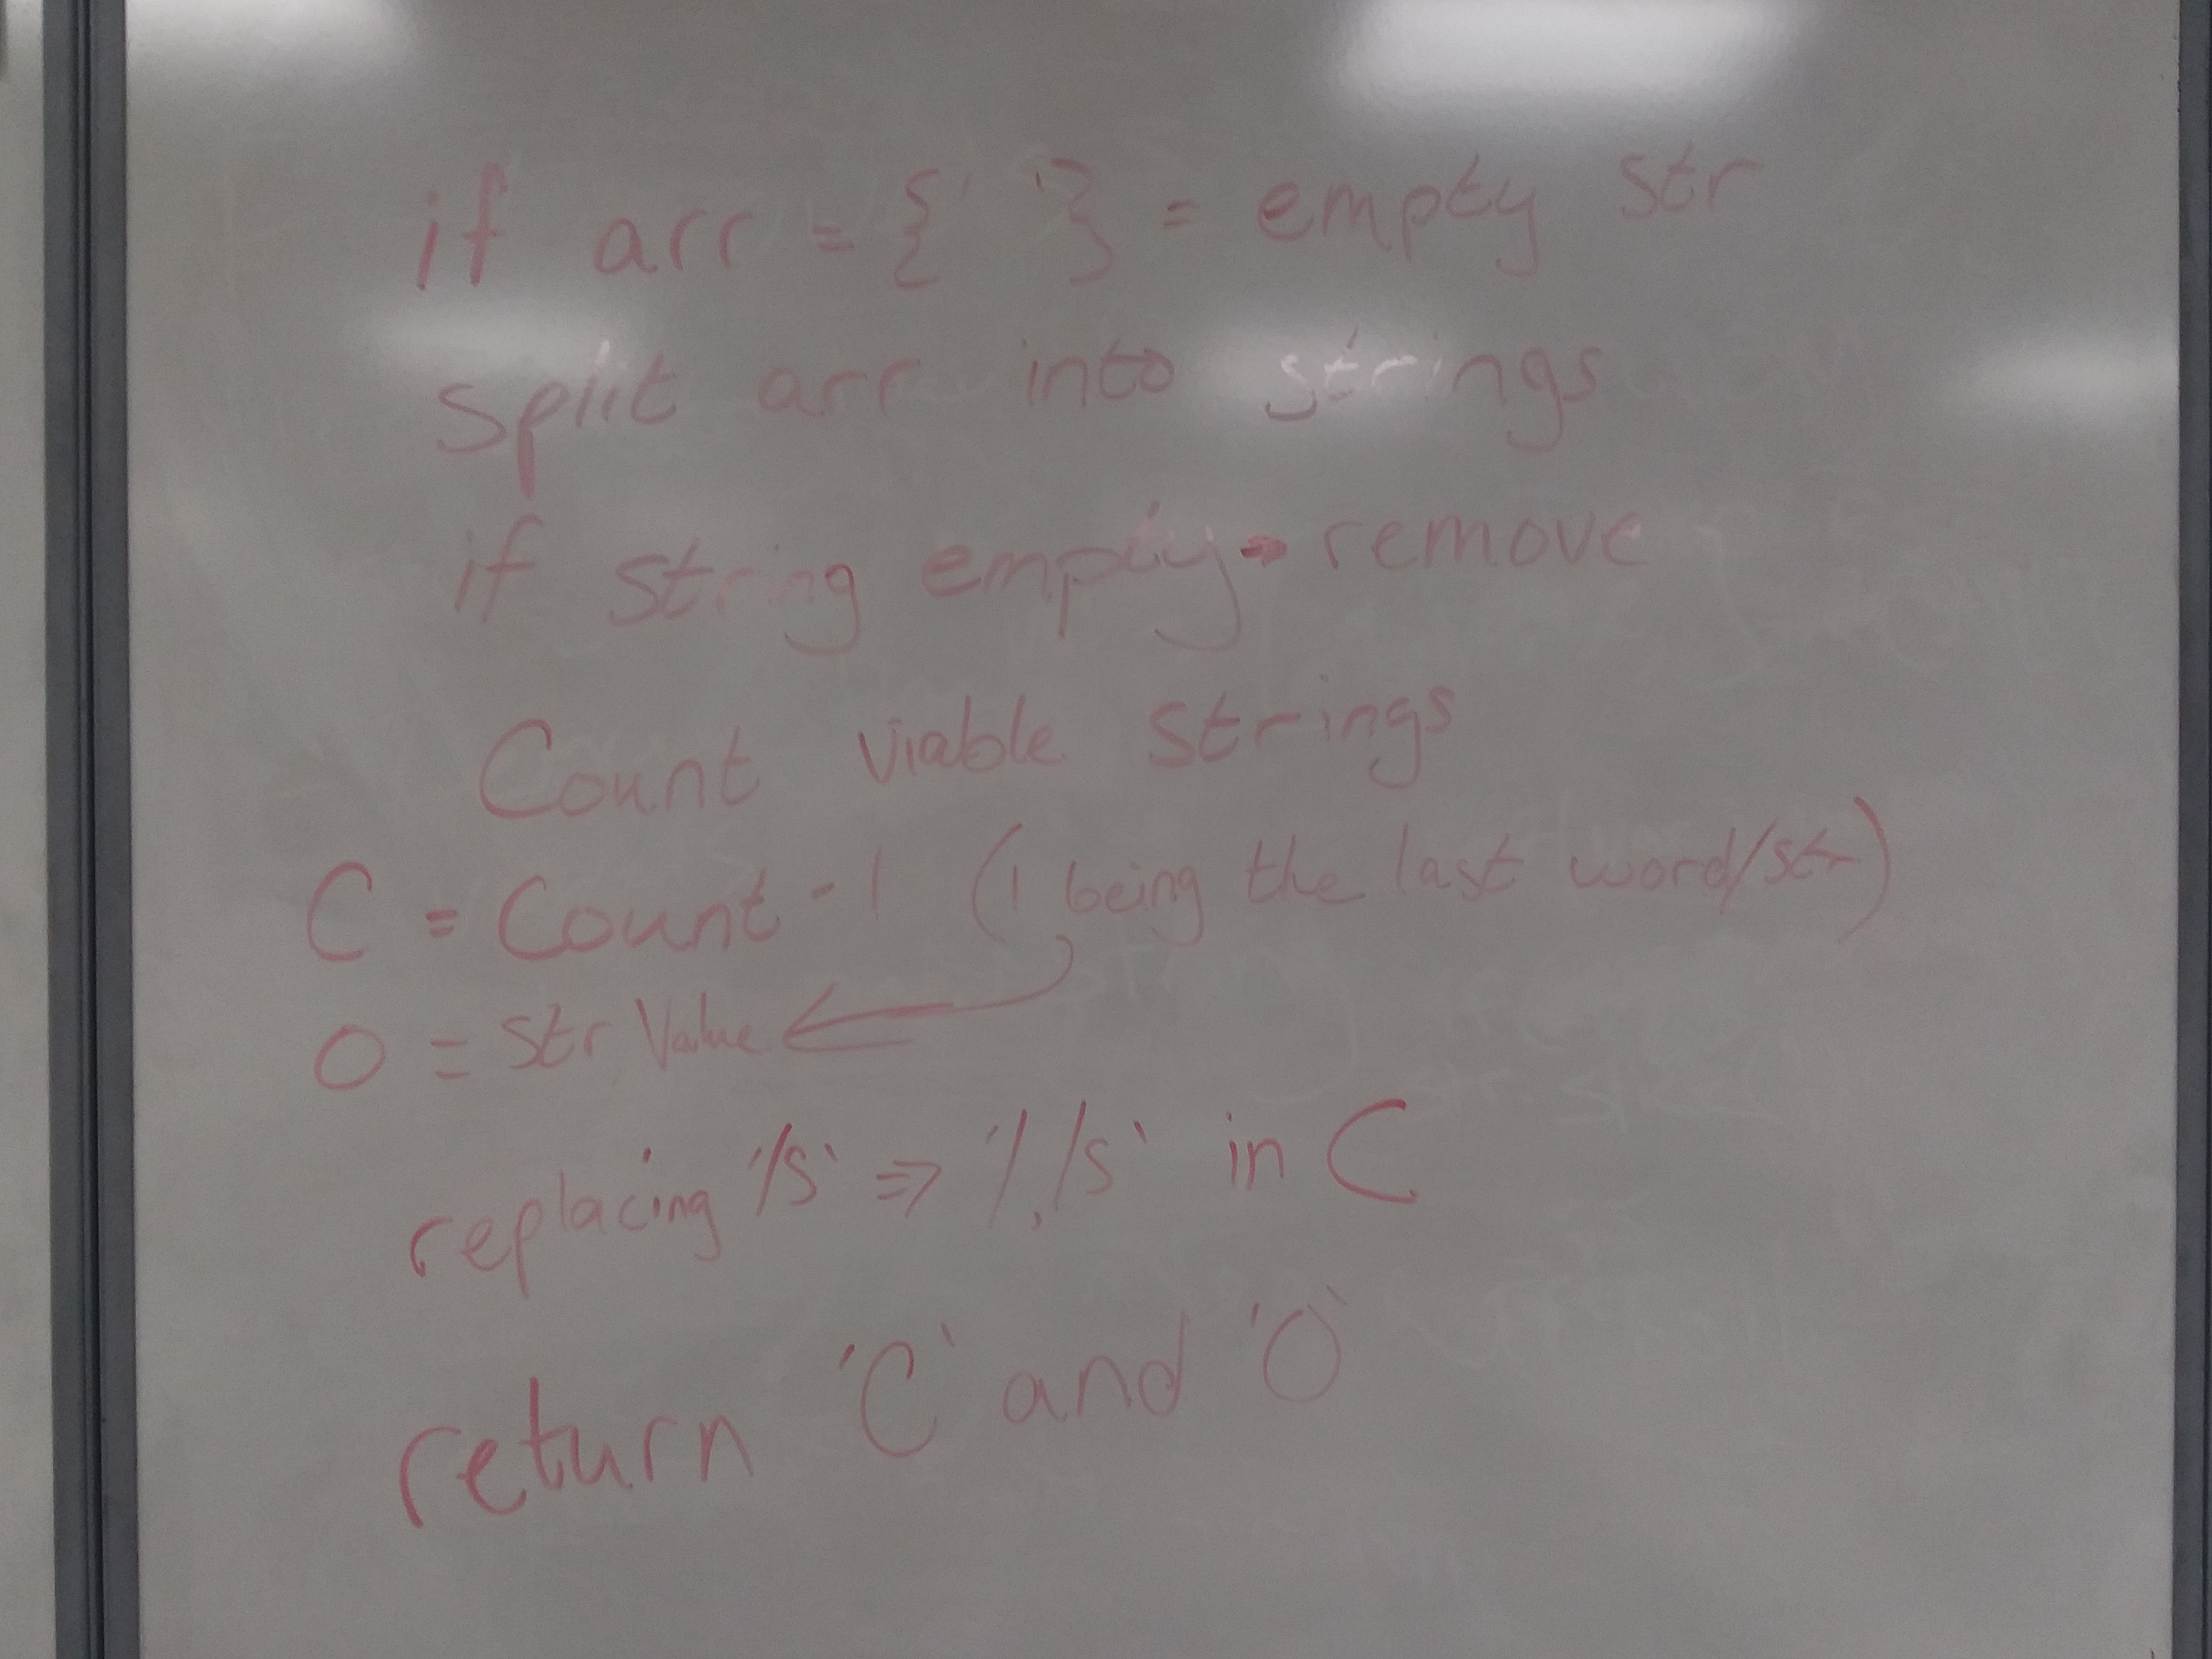 if arr = {' '} = empty str
split arr into strings
if string empty → remove
Count viable strings
C = Count - 1 (1 being the last word/str)
O = Str Value ←
replacing '/s' ⇒ '/,/s' in C
return 'C' and 'O'